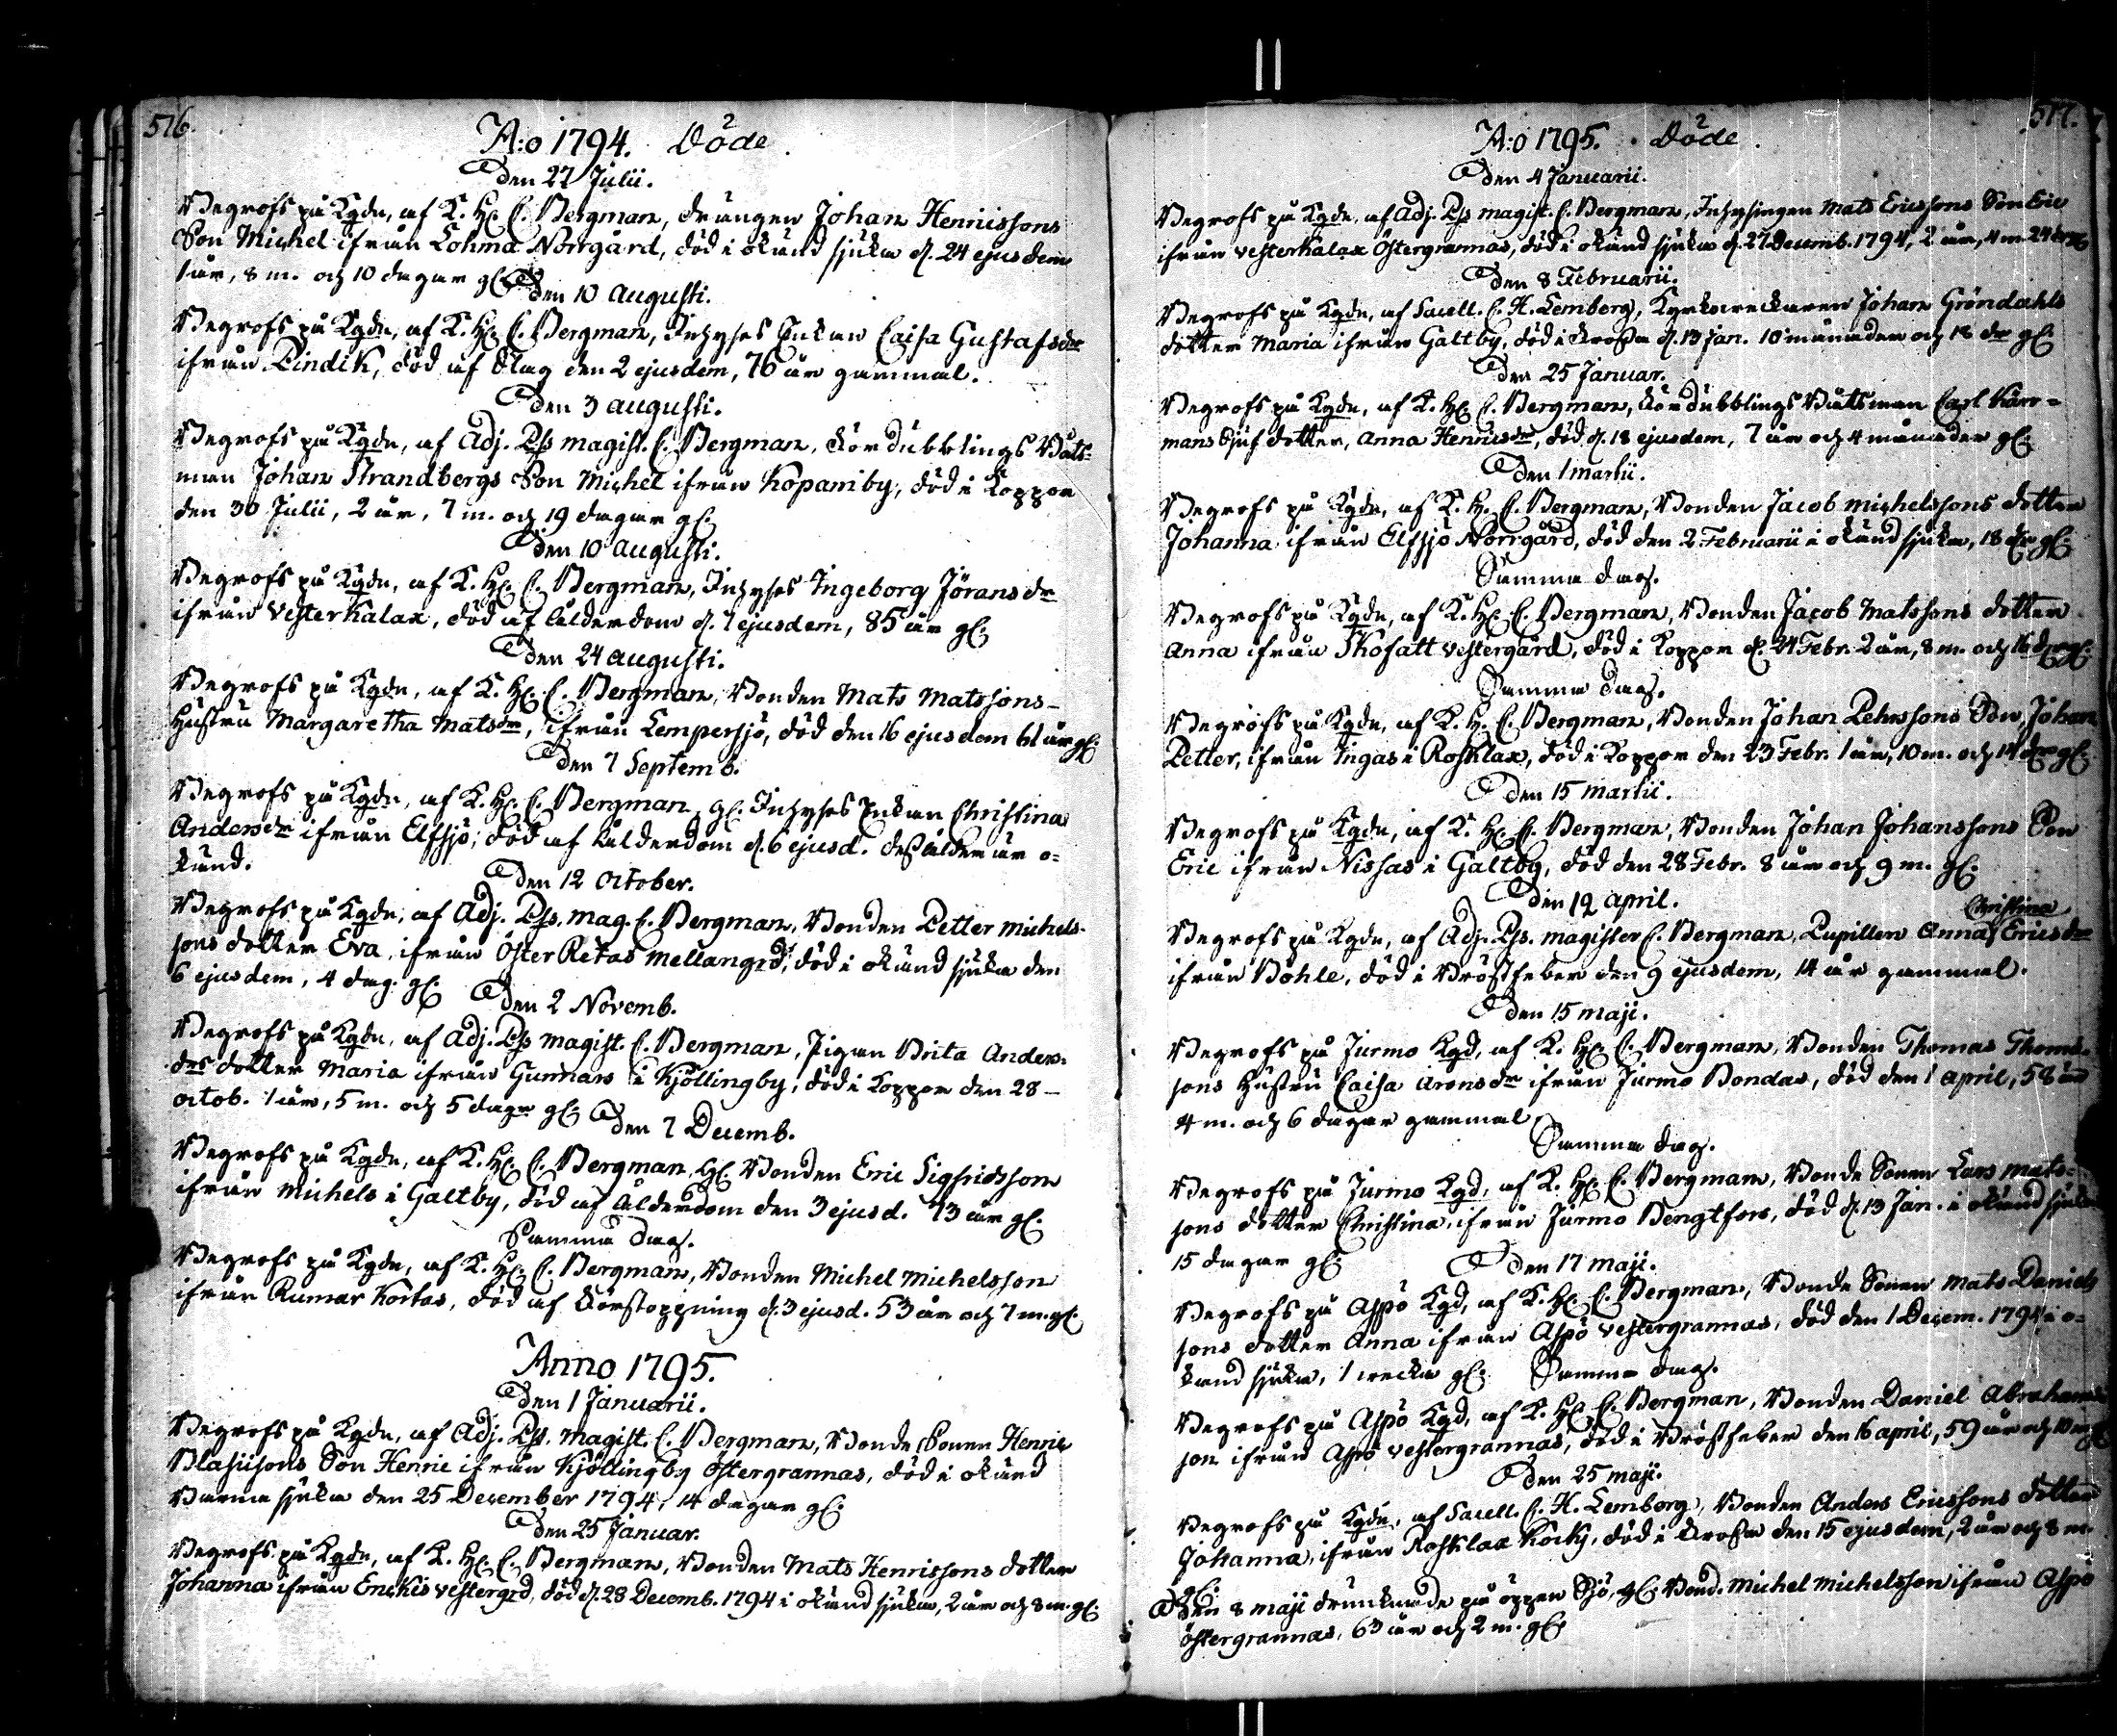 516.
A:o 1794. Döde.
den 27 Julii.
Begrofs på Kgdn, af K. Hl. C. Bergman, drängen Johan Henricssons
Son Michel ifrån Lohma Norrgård, död i okänd sjuka d. 24 ejusdem
1 år, 8 m. och 10 dagar gl.
den 10 Augusti.
Begrofs på Kgdn, af K. Hl. C. Bergman, Inhyses Enkan Caisa Gustafsdr
ifrån Pindik, död af Slag den 2 ejusdem, 76 år gammal.
den 3 augusti.
Begrofs på Kgdn, af Adj. Ps magist. C. Bergman, Fördubblings Båts-
man Johan Strandbergs Son Michel ifrån Kopamby, död i Koppor
den 30 Julii, 2 år, 7 m. och 19 dagar gl.
den 10 augusti.
Begrofs på Kgdn, af K. Hl. C. Bergman, Inhyses Ingeborg Jöransdr
ifrån Vesterkalax, död af ålderdom d. 7 ejusdem, 85 år gl.
den 24 augusti.
Begrofs på Kgdn, af K. Hl. C. Bergman, Bonden Mats Matssons
Hustru Margaretha Matsdr, ifrån Lempersjö, död den 16 ejusdem 61 år gl.
den 7 Septemb.
Begrofs på Kgdn, af K. Hl. C. Bergman, gl. Inhyses Enkan Christina
Andersdr ifrån Elfsjö, död af ålderdom d. 6 ejusd. dess ålder är o-
känd.
den 12 October.
Begrofs på Kgdn, af Adj. Ps. mag. C. Bergman, Bonden Petter Michels-
sons dotter Eva, ifrån Öster Retas mellangrd, död i okänd sjuka den
6 ejusdem, 4 dag. gl.
den 2 Novemb.
Begrofs på Kgdn, af Adj. Ps magist. C. Bergman, Pigan Brita Anders-
drs dotter Maria ifrån Gunnars i Kjöllingby, död i Koppor den 28
octob. 1 år, 5 m. och 5 dagar gl.
den 7 Decemb.
Begrofs på Kgdn, af K. Hl. C. Bergman, gl. Bonden Eric Sigfridsson
ifrån Michels i Galtby, död af ålderdom den 3 ejusd. 73 år gl.
Samma dag.
Begrofs på Kgdn, af K. Hl. C. Bergman, Bonden Michel Michelsson
ifrån Rumar Kortas, död af Förstoppning d. 3 ejusd. 53 år och 7 m. gl.
Anno 1795.
den 1 Januarii.
Begrofs på Kgdn, af Adj. Ps. Magist. C. Bergman, Bonde Sonen Henric
Blasiisons Son Henric ifrån Kjöllingby Östergrannas, död i okänd
Barna sjuka den 25 December 1794, 14 dagar gl.
den 25 Januar.
Begrofs på Kgdn, af K. Hl. C. Bergman, Bonden Mats Henricssons dotter
Johanna ifrån Enckis vestergrd, död d. 28 Decemb. 1794 i okänd sjuka, 2 år och 8 m. gl.
517.
A:o 1795. Döde.
den 4 Januarii.
Begrofs på Kgdn, af Adj. Ps magist. C. Bergman, Inhysingen Mats Ericssons Son Eric
ifrån Vesterkalax Östergrannas, död i okänd sjuka d. 27 Decemb. 1794, 2 år, 4 m. 24
den 8 Februarii.
Begrofs på Kgdn, af Sacell. C. H. Lemberg, Kyrkoväktaren Johan Gröndahls
dotter Maria ifrån Galtby, död i Trossen d. 13 Jan. 10 månader och 18 dr gl.
den 25 Januar.
Begrofs på Kgdn, af K. Hl. C. Bergman, Fördubblings Båtsman Carl Kärr-
mans styfdotter, Anna Henricsdr, död d. 18 ejusdem, 7 år och 4 månader gl.
den 1 martii.
Begrofs på Kgdn, af K. H. C. Bergman, Bonden Jacob Michelssons dotter
Johanna ifrån Elfsjö Norrgård, död den 2 Februarii i okänd sjuka, 18 dr gl.
Samma dag.
Begrofs på Kgdn, af K. Hl. C. Bergman, Bonden Jacob Matssons dotter
Anna ifrån Thofatt Vestergård, död i Koppor d. 21 Febr. 2 år, 8 m. och 16 dgr gl.
Samma dag.
Begrofs på Kgdn, af K. H. C. Bergman, Bonden Johan Pehrssons Son, Johan
Petter, ifrån Ingas i Rosklax, död i Koppor den 23 Febr. 1 år, 10 m. och 14 dr gl.
den 15 martii.
Begrofs på Kgdn, af K. Hl. C. Bergman, Bonden Johan Johanssons Son
Eric ifrån Nissas i Galtby, död den 28 Febr. 8 år och 9 m. gl.
den 12 april.
Begrofs på Kgdn, af Adj. Ps. magister C. Bergman, Pupillen Anna Christina Ericsdr
ifrån Böhle, död i Bröstfeber den 9 ejusdem, 14 år gammal.
den 15 maji.
Begrofs på Jurmo Kgd, af K. Hl. C. Bergman, Bonden Thomas Thoms-
sons Hustru Caisa Aronsdr ifrån Jurmo Bondas, död den 1 april, 58 år
4 m. och 6 dagar gammal
Samma dag.
Begrofs på Jurmo Kgd, af K. Hl. C. Bergman, Bonde Sonen Lars Mats-
sons dotter Christina, ifrån Jurmo Bengtfors, död d. 13 Jan. i okänd sjuka
15 dagar gl.
den 17 maji.
Begrofs på Aspö Kgd, af K. Hl. C. Bergman, Bonde Sonen Mats Daniels
sons dotter Anna ifrån Aspö Vestergrannas, död den 1 Decem. 1794 i o-
känd sjuka, 1 wecka gl.
Samma dag.
Begrofs på Aspö Kgd, af K. Hl. C. Bergman, Bonden Daniel Abrahams
son ifrån Aspö Vestergrannas, död i Bröstfeber den 16 april, 59 år och
den 25 maji.
Begrofs på Kgdn, af Sacell. C. H. Lemberg, Bonden Anders Ericssons dotter
Johanna, ifrån Rosklax Kocky, död i Trossen den 15 ejusdem, 2 år och 8 m.
gl.
Den 8 maji drunknade på öppen Sjö, gl. Bond. Michel Michelsson ifrån Aspö
östergrannas, 63 år och 2 m. gl.